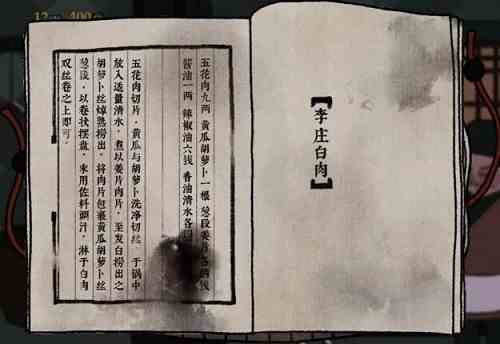 【李庄白肉】
五花肉九两 黄瓜胡萝卜一根 葱段姜
酱油一两 辣椒油六钱 香油清水各
五花肉切片，黄瓜与胡萝卜洗净切丝。于锅中
放入适量清水，煮以姜片肉片，至发白捞出之
胡萝卜丝焯熟捞出，将肉片包裹黄瓜胡萝卜丝
葱段，以卷状摆盘，末用佐料调汁，淋于白肉
双丝卷之上即可。